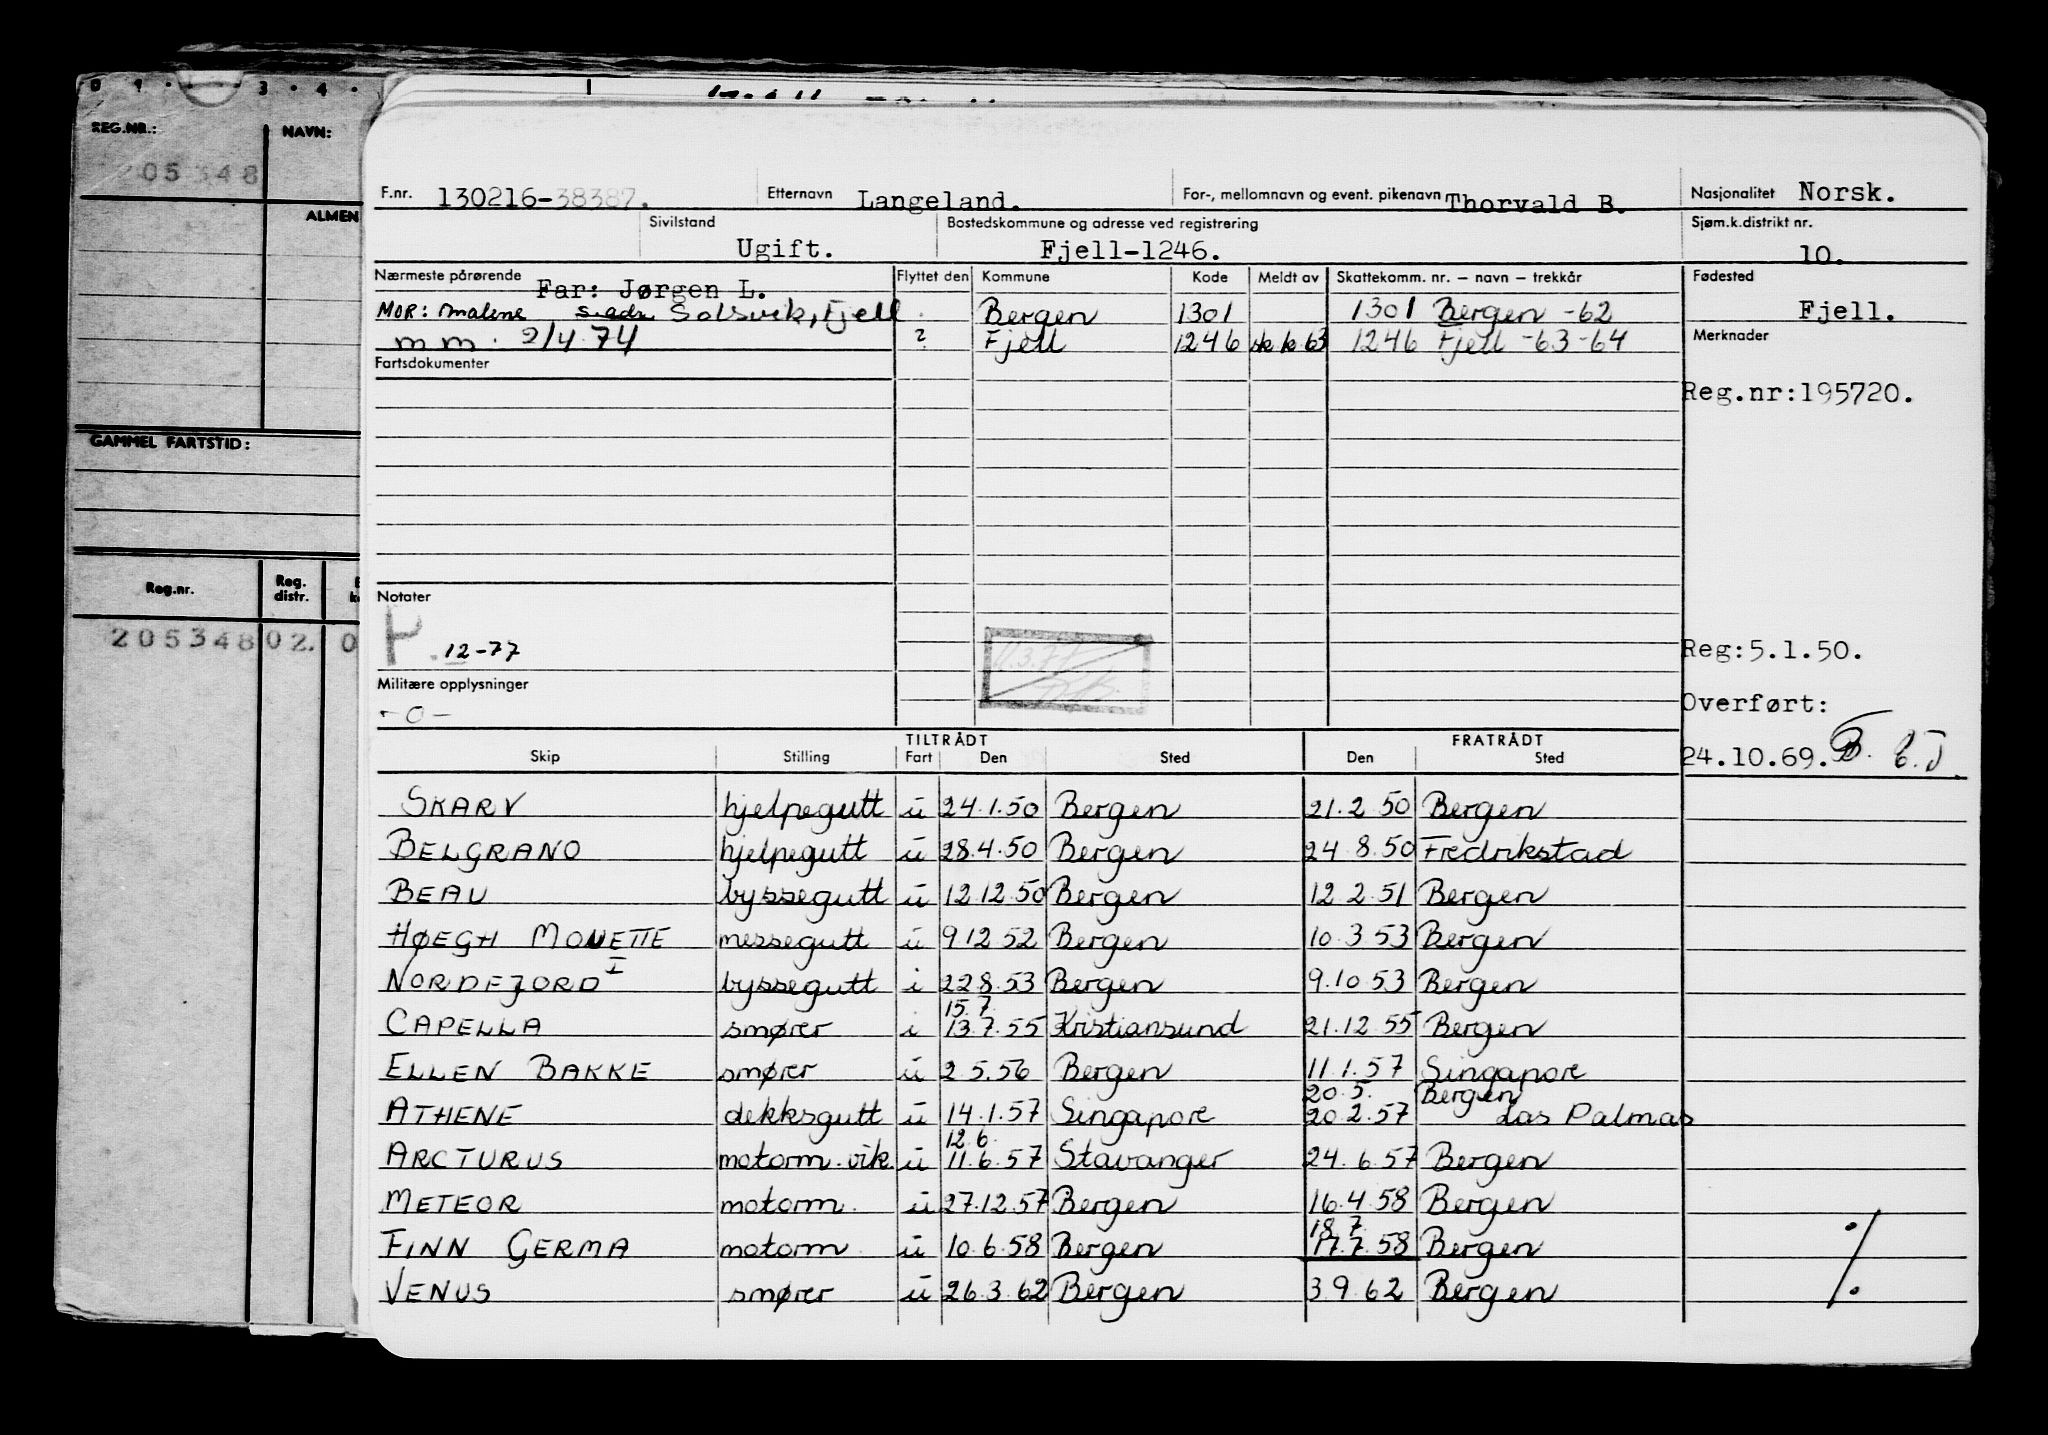 0 1 · 3 · 4 ·
REG.NR.: NAVN:
205348
ALMEN
GAMMEL FARTSTID:
Reg.nr. Reg. distr.
205348 02. 0
F.nr. 130216-38387. Etternavn Langeland. For-, mellomnavn og event. pikenavn Thorvald B. Nasjonalitet Norsk.
Sivilstand Ugift. Bostedskommune og adresse ved registrering Fjell-1246. Sjøm.k.distrikt nr. 10.
Nærmeste pårørende Far: Jørgen L. Flyttet den Kommune Kode Meldt av Skattekomm. nr. – navn – trekkår Fødested
MOR: Malene s.adr. Solsvik, Fjell. Bergen 1301 1301 Bergen -62 Fjell.
m m. 2/4 74 ? Fjell 1246 sk k 63 1246 Fjell -63-64 Merknader
Fartsdokumenter
Reg.nr:195720.
Notater
P. 12-77
11.3.77
Reg:5.1.50.
Militære opplysninger
-0-
Overført:
24.10.69.
TILTRÅDT FRATRÅDT
Skip Stilling Fart Den Sted Den Sted
SKARV hjelpegutt u 24.1.50 Bergen 21.2 50 Bergen
BELGRANO hjelpegutt u 28.4.50 Bergen 24 8.50 Fredrikstad
BEAU byssegutt u 12.12.50 Bergen 12 2.51 Bergen
HØEGH MONETTE messegutt u 9 12 52 Bergen 10.3 53 Bergen
NORDFJORD I byssegutt i 22 8.53 Bergen 9.10 53 Bergen
15.7.
CAPELLA smører i 13.7.55 Kristiansund 21.12 55 Bergen
ELLEN BAKKE smører u 2 5.56 Bergen 11.1.57 Singapore
20.5. Bergen
ATHENE dekksgutt u 14.1.57 Singapore 20.2.57 Las Palmas
12.6.
ARCTURUS motorm.vik. u 11.6.57 Stavanger 24.6.57 Bergen
METEOR motorm. u 27.12.57 Bergen 16.4.58 Bergen
18.7.
FINN GERMA motorm. u 10.6.58 Bergen 17.7.58 Bergen
VENUS smører u 26.3.62 Bergen 3 9.62 Bergen
./.